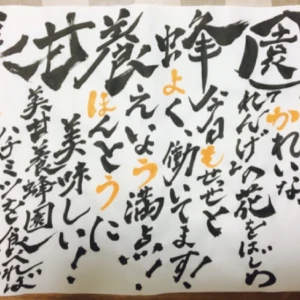 園
かれいな
れんげの花を
蜂
今日もせせと
よく、働いてます!
養
えいよう満点!
ほんとうに
甘
美味しい!
美甘養蜂園
ハチミツを食べれば